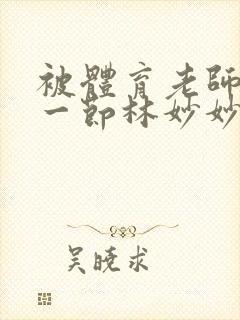 被體育老師
一節林妙妙
吴曉求